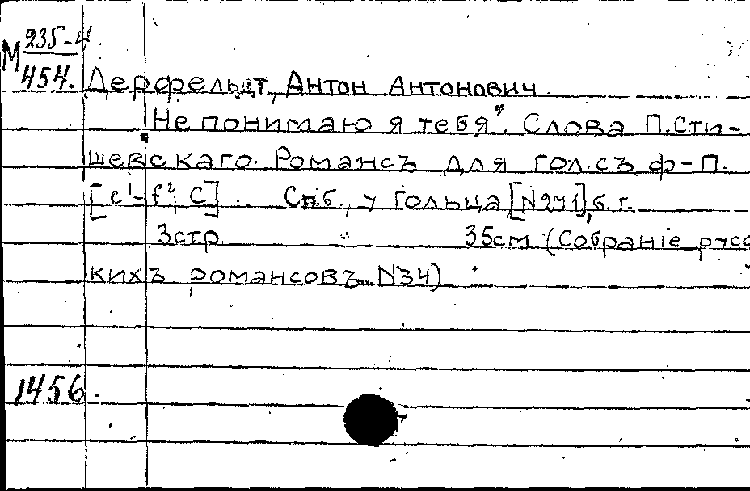 М 235-4
454. Дерфельдт, Антон Антонович.
"Не понимаю я тебя". Слова П.Сти-
шевскаго. Романсъ для гол.съ ф-п.
[e¹-f², C] Спб., у Гольца [N271], б.г.
3стр 35см (Собраніе русс
кихъ романсовъ N34)
1456.